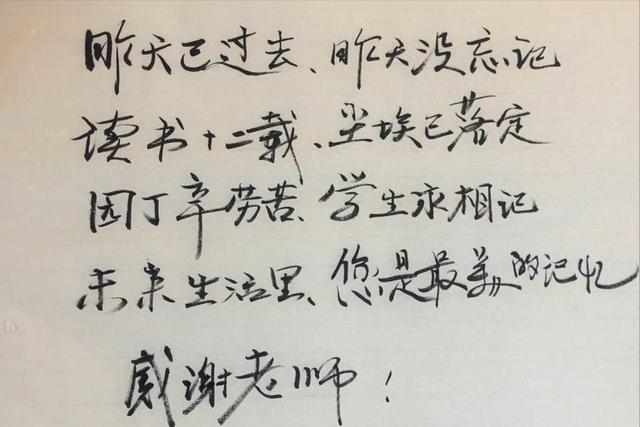 昨天已过去、昨天没忘记
读书十二载、尘埃已落定
园丁辛劳苦、学生永相记
未来生活里、您是最美的记忆
感谢老师！